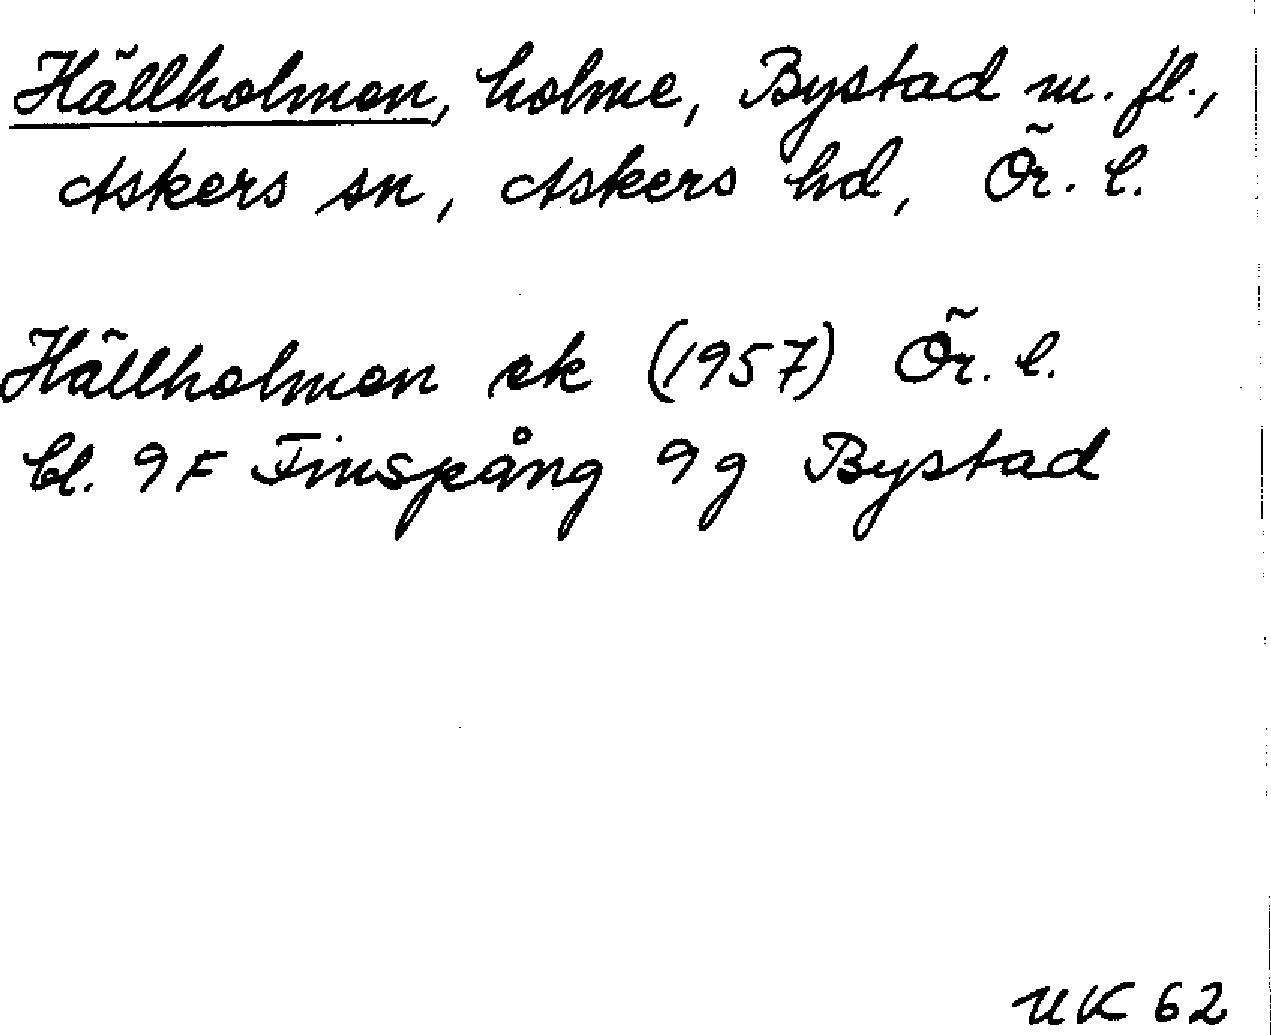 Hällholmen, holme, Bystad m. fl.,
Askers sn, Askers hd, Ör. l.
Hällholmen ek (1957) Ör. l.
bl. 9F Finspång 9g Bystad
UK 62